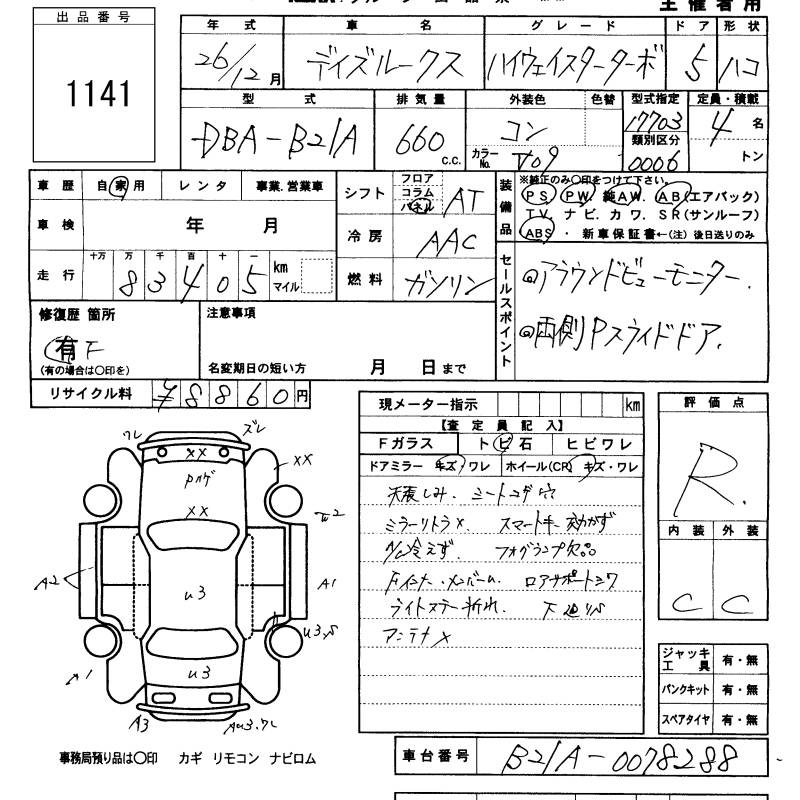 主催者用
出品番号
1141
年式 車名 グレード ドア 形状
26/12月 デイズルークス ハイウェイスターターボ 5 ハコ
型式 排気量 外装色 色替 型式指定 定員・積載
DBA-B21A 660 c.c. コン 17703 4 名
カラーNo. V09 類別区分 0006 トン
車歴 自家用 レンタ 事業.営業車
シフト フロア コラム パネル AT
装備品 ※純正のみ〇印をつけて下さい。
PS. PW. 純AW. AB(エアバック)
TV. ナビ. カワ. SR(サンルーフ)
ABS ・ 新車保証書←(注) 後日送りのみ
車検 年 月
冷房 AAC
走行 十万 万 千 百 十 一
83405 km マイル
燃料 ガソリン
セールスポイント
◎アラウンドビューモニター.
◎両側Pスライドドア.
修復歴 箇所
有 F
(有の場合は〇印を)
注意事項
名変期日の短い方 月 日まで
リサイクル料 ¥8860円
現メーター指示 km
【査定員記入】
Fガラス トビ石 ヒビワレ
ドアミラー キズ/ワレ ホイール(CR) キズ・ワレ
天張しみ. シートコゲ穴
ミラーリトラ×. スマートキー効かず
A/C冷えず. フォグランプ欠品
Fインナー.メンバーム. ロアサポートシワ
ライトステー折れ. 下廻りS
アンテナ×
評価点
R.
内装 外装
C C
ワレ ズレ
××
××
Pハゲ
××
A2
u3
A1
u3.S
A1
u3
A3
Au3.ワレ
ジャッキ工具 有・無
パンクキット 有・無
スペアタイヤ 有・無
事務局預り品は〇印 カギ リモコン ナビロム
車台番号 B21A-0078288